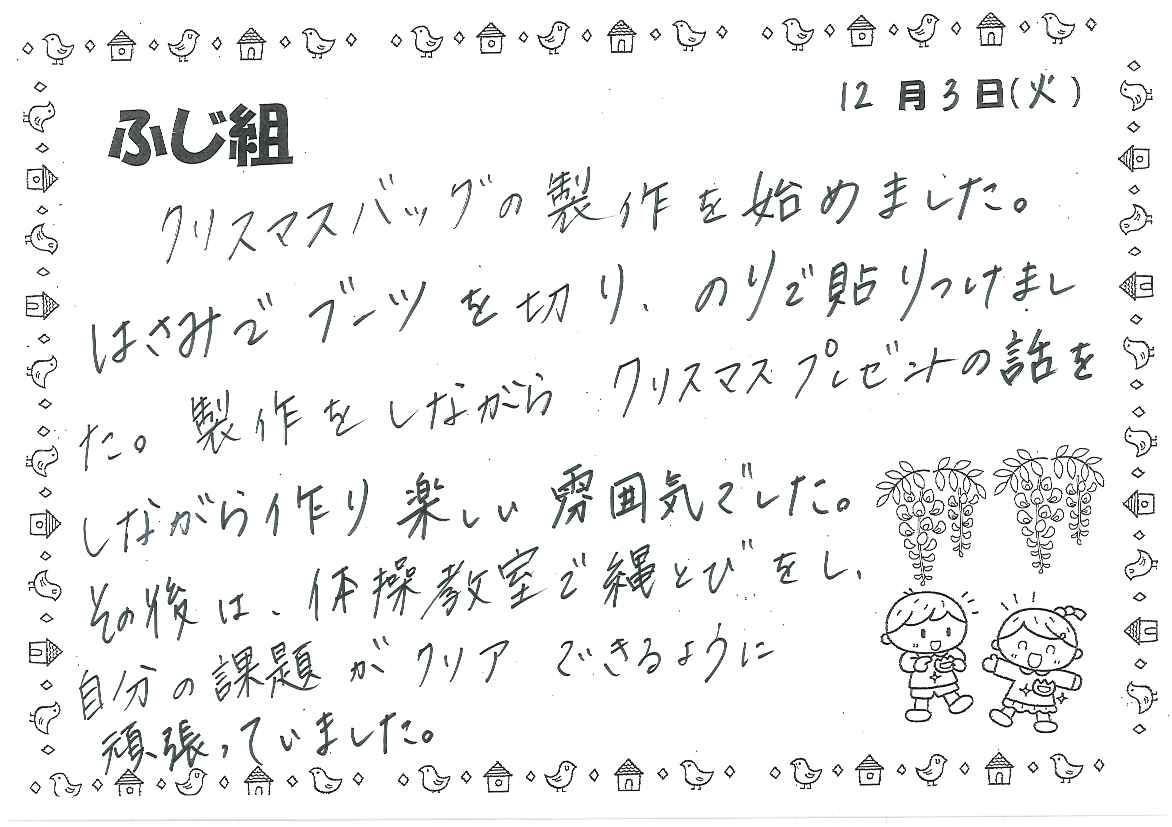 12月3日(火)
ふじ組
クリスマスバッグの製作を始めました。
はさみでブーツを切り、のりで貼りつけまし
た。製作をしながらクリスマスプレゼントの話を
しながら作り楽しい雰囲気でした。
その後は、体操教室で縄とびをし、
自分の課題がクリアできるように
頑張っていました。